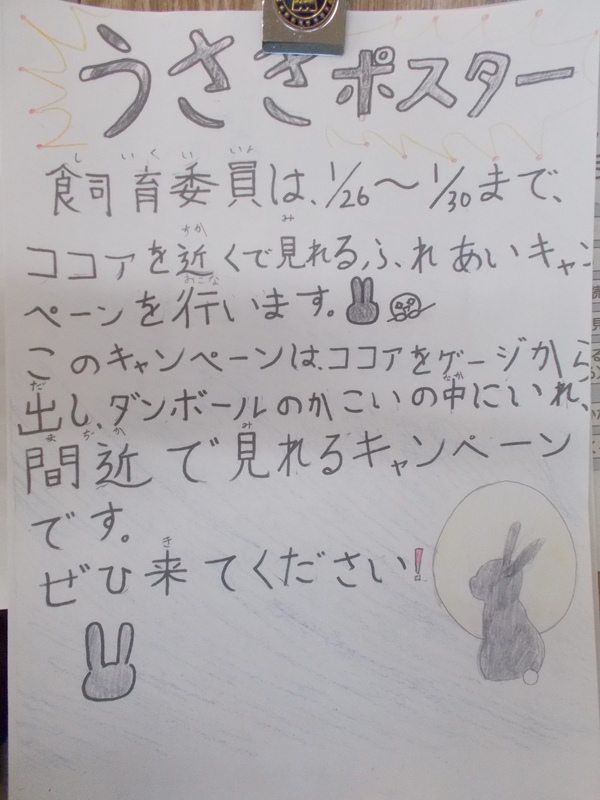 うさぎポスター
飼育委員は、1/26〜1/30まで、
ココアを近くで見れる、ふれあいキャン
ペーンを行います。
このキャンペーンは、ココアをゲージから
出し、ダンボールのかこいの中にいれ、
間近で見れるキャンペーン
です。
ぜひ来てください!